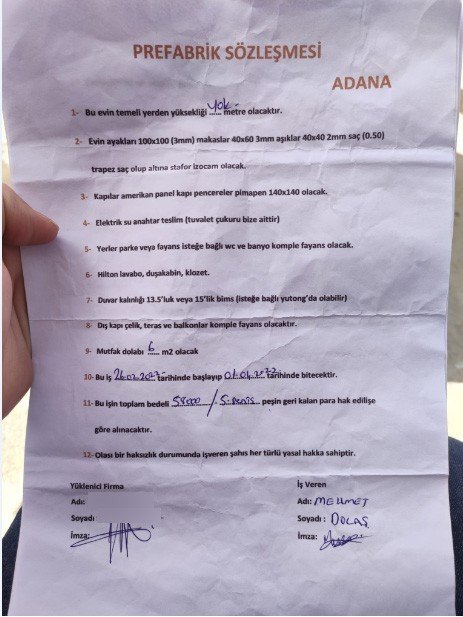 PREFABRİK SÖZLEŞMESİ
ADANA
1- Bu evin temeli yerden yüksekliği yok metre olacaktır.
2- Evin ayakları 100x100 (3mm) makaslar 40x60 3mm aşıklar 40x40 2mm saç (0.50)
trapez saç olup altına stafor izocam olacak.
3- Kapılar amerikan panel kapı pencereler pimapen 140x140 olacak.
4- Elektrik su anahtar teslim (tuvalet çukuru bize aittir)
5- Yerler parke veya fayans isteğe bağlı wc ve banyo komple fayans olacak.
6- Hilton lavabo, duşakabin, klozet.
7- Duvar kalınlığı 13.5'luk veya 15'lik bims (isteğe bağlı yutong'da olabilir)
8- Dış kapı çelik, teras ve balkonlar komple fayans olacaktır.
9- Mutfak dolabı 6 m2 olacak
10- Bu iş tarihinde başlayıp tarihinde bitecektir.
11- Bu işin toplam bedeli 58000 / peşin geri kalan para hak edilişe
göre alınacaktır.
12- Olası bir haksızlık durumunda işveren şahıs her türlü yasal hakka sahiptir.
Yüklenici Firma
Adı:
Soyadı:
İmza:
İş Veren
Adı: MEHMET
Soyadı : DOLAŞ
İmza: